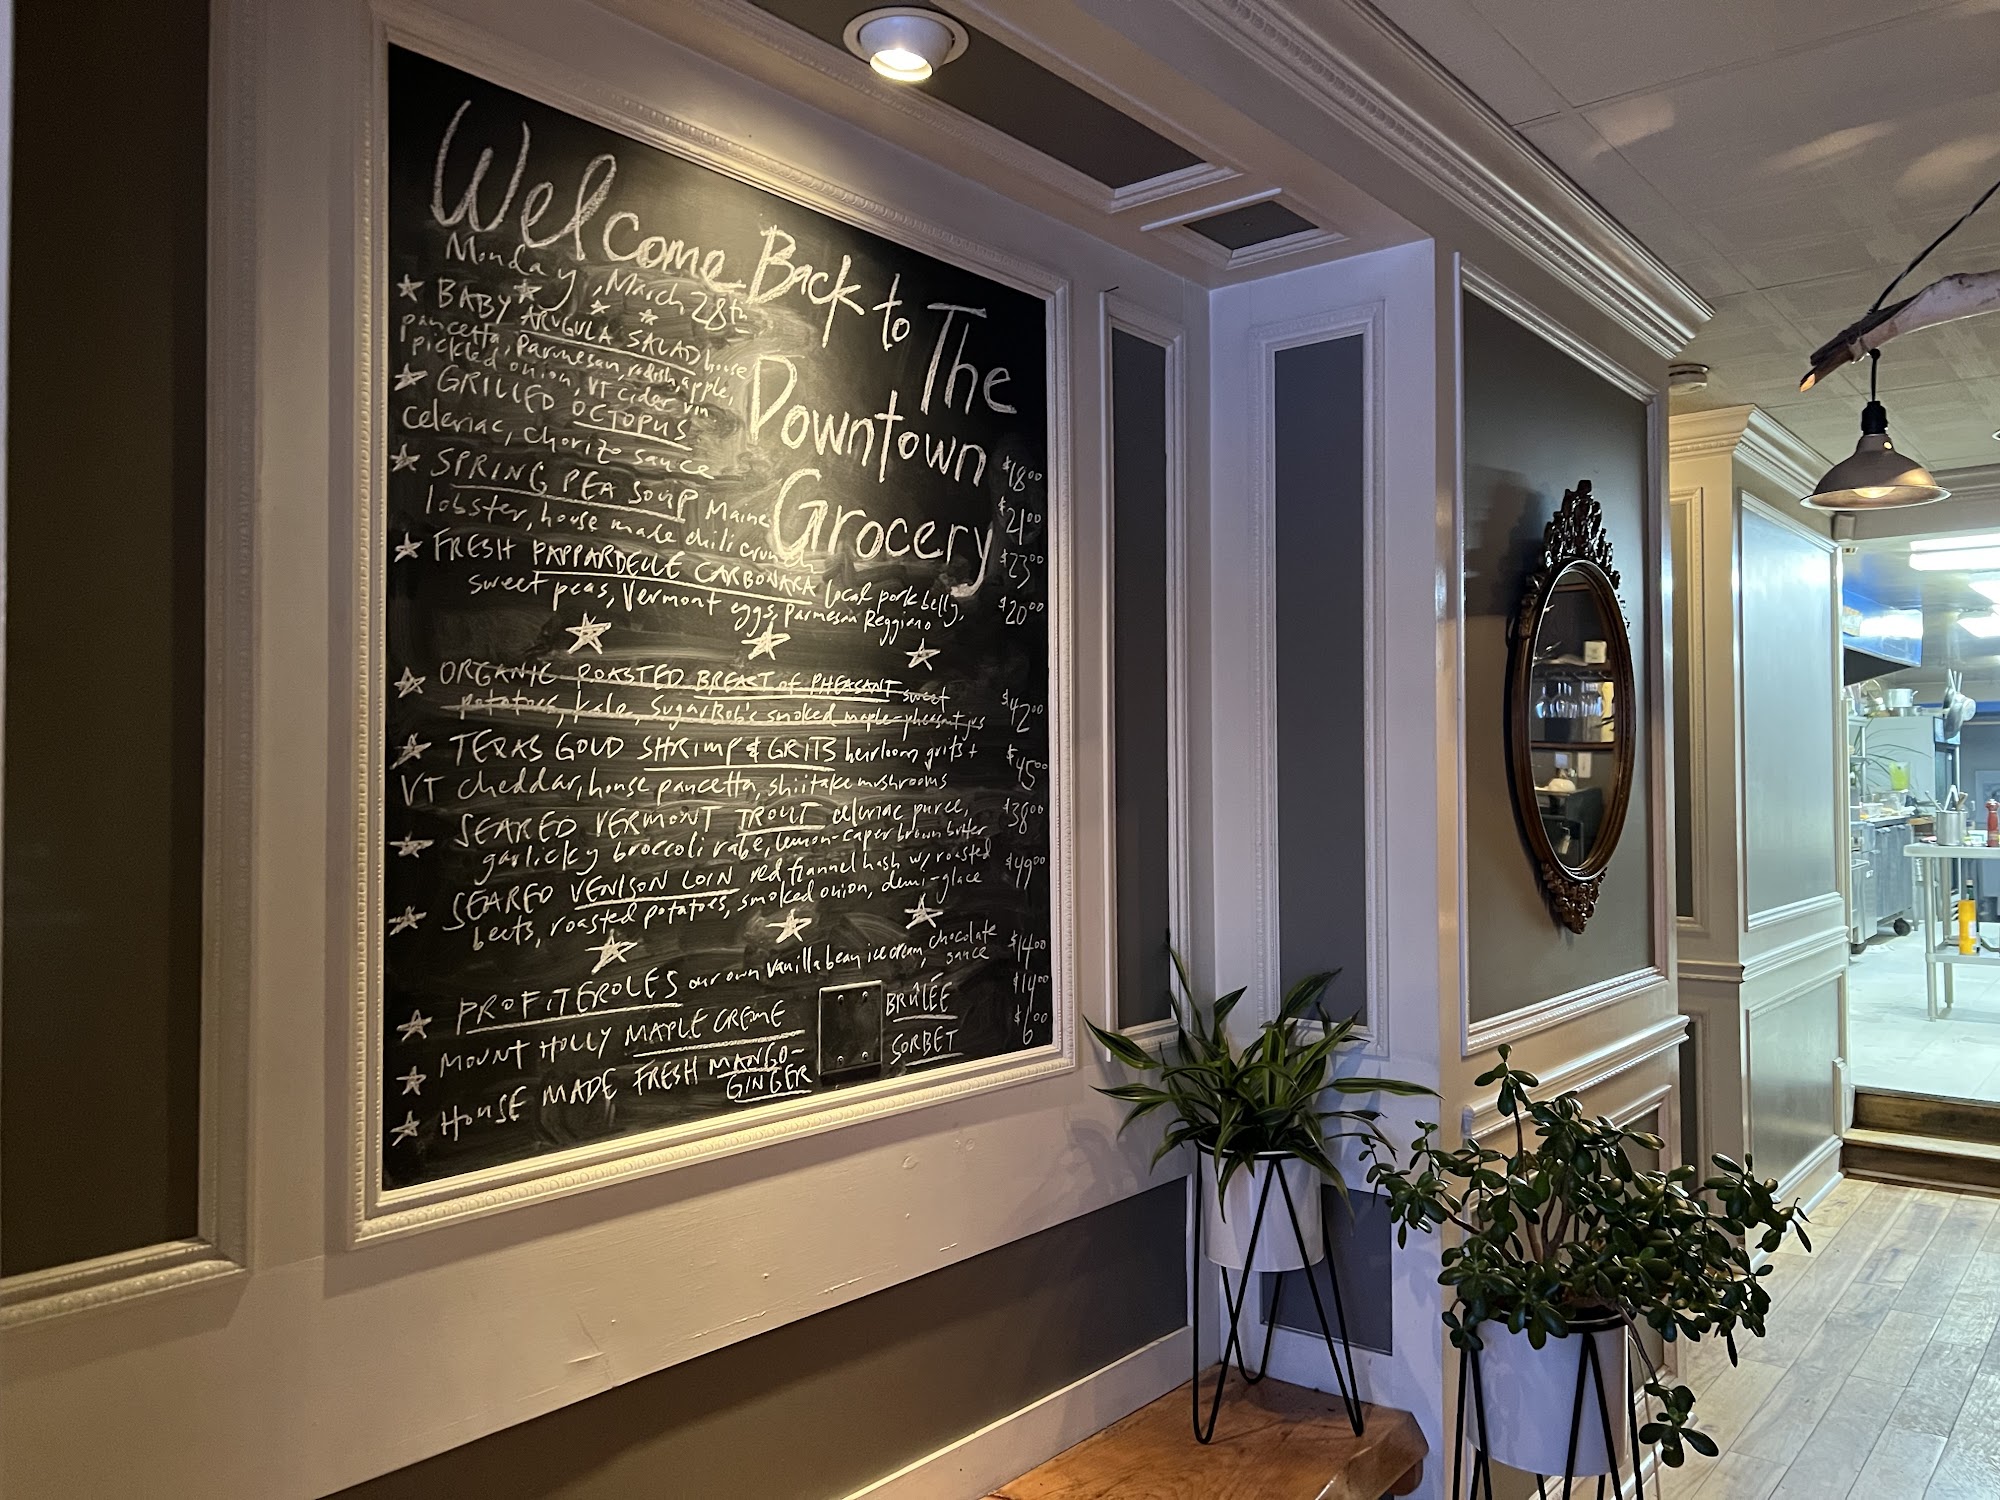 Welcome Back to The
Downtown
Grocery
Monday, March 28th
BABY ARUGULA SALAD house
pancetta, Parmesan, radish, apple,
pickled onion, VT cider vin $18.00
GRILLED OCTOPUS
celeriac, chorizo sauce $21.00
SPRING PEA SOUP Maine
lobster, house made chili crunch $23.00
FRESH PAPPARDELLE CARBONARA local pork belly,
sweet peas, Vermont eggs, Parmesan Reggiano $20.00
ORGANIC ROASTED BREAST of PHEASANT sweet
potatoes, kale, Sugar Bob's smoked maple-pheasant jus $42.00
TEXAS GOLD SHRIMP & GRITS heirloom grits +
VT cheddar, house pancetta, shiitake mushrooms $45.00
SEARED VERMONT TROUT celeriac puree,
garlicky broccoli rabe, lemon-caper brown butter $38.00
SEARED VENISON LOIN red flannel hash w/ roasted
beets, roasted potatoes, smoked onion, demi-glace $49.00
PROFITEROLES our own vanilla bean ice cream, chocolate
sauce $14.00
MOUNT HOLLY MAPLE CREME BRÛLÉE $14.00
HOUSE MADE FRESH MANGO-
GINGER SORBET $6.00